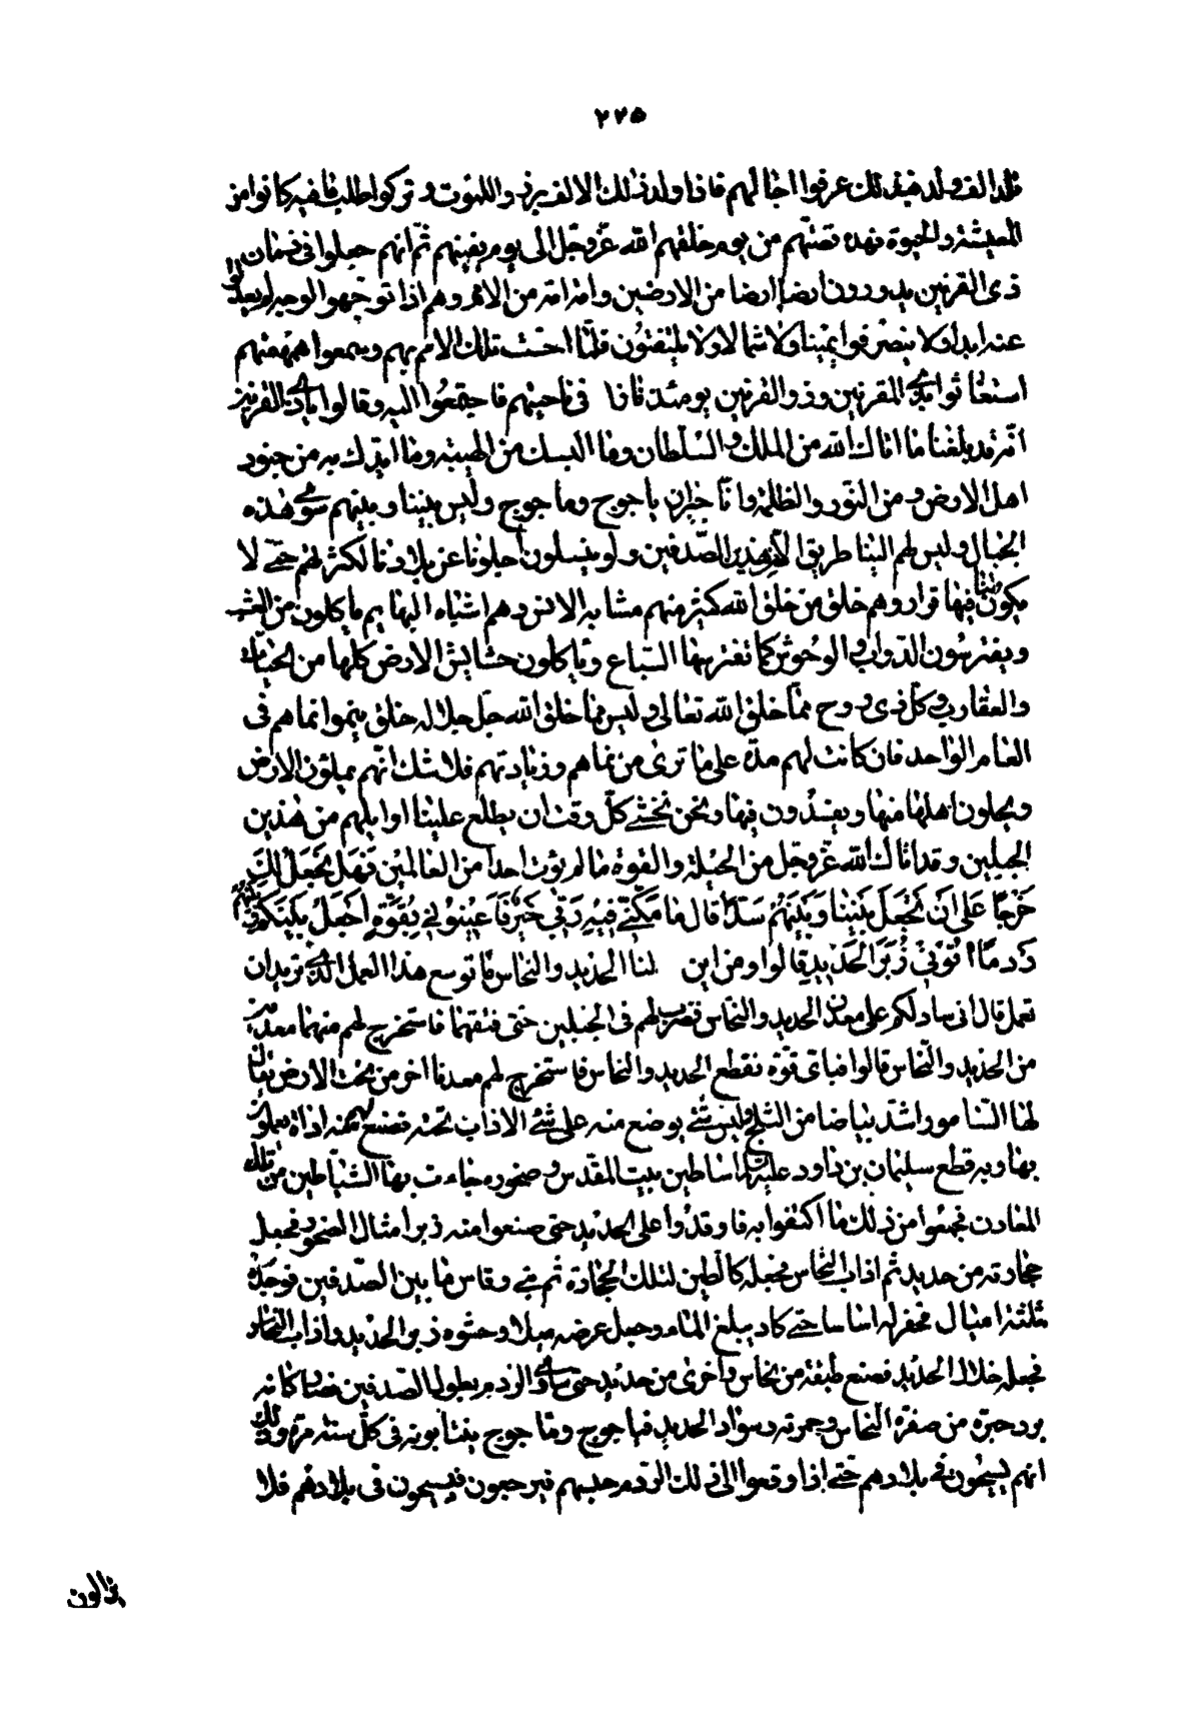 ٢٢٥
فلد الف ولد فبذلك عرفوا اجالهم فاذا ولد ذلك الالف برزوا للموت وتركوا طلب ما فيه كانوا من
المعيشة والحيوة فهذه قصتهم من يوم خلقهم الله عزوجل الى يوم يفنيهم ثم انهم جعلوا فى زمان
ذى القرنين يدورون ارضا ارضا من الارضين وامة امة من الامم وهم اذا توجهوا لوجه لم يعدلوا
عنه ابدا ولا ينصرفوا يمينا ولا شمالا ولا يلتفتون فلما احست تلك الامم بهم وسمعوا همهمتهم
استغاثوا بذى القرنين وذو القرنين يومئذ نازلا فى ناحيتهم فاجتمعوا اليه وقالوا ياذى القرنين
انه قد بلغنا ما اتاك الله من الملك والسلطان وما البسك من الهيبة وما ايدك به من جنود
اهل الارض ومن النور والظلمة وانا جيران ياجوج وماجوج وليس بيننا وبينهم سوى هذه
الجبال وليس لهم الينا طريق الا من هذين الصدفين ولو ينسلون اجلونا عن بلادنا لكثرتهم حتى لا
يكون لنا فيها قرار وهم خلق من خلق الله كثير منهم مشابه الانس وهم اشباه البهايم ياكلون من العشب
ويفترسون الدواب والوحوش كما تفترسها السباع وياكلون حشايش الارض كلها من الحيات
والعقارب وكل ذى روح مما خلق الله تعالى وليس مما خلق الله جل جلاله خلق ينموا نماهم فى
العام الواحد فان كانت لهم مدة على ما ترى من نماهم وزيادتهم فلا شك انهم يملؤن الارض
ويجلون اهلها منها ويفسدون فيها ونحن نخشى كل وقت ان يطلع علينا اوايلهم من هذين
الجبلين وقد اتاك الله عزوجل من الحيلة والقوة ما لم يؤت احدا من العالمين فَهَل نَجعَلُ لَكَ
خَرجًا عَلى اَن تَجعَلَ بَينَنا وَبَينَهُم سَدًّا قالَ ما مَكَّنّى فيهِ رَبّى خَيرٌ فَاَعينُونى بِقُوَّةٍ اَجعَل بَينَكُم وبينهم
رَدمًا اتُونى زُبَرَ الحَديد قالوا ومن اين لنا الحديد والنحاس ما توسع هذا العمل الذى تريد ان
تعمل قال انى سادلكم على معدن الحديد والنحاس فضرب لهم فى الجبلين حتى فتقهما فاستخرج لهم منهما معدنين
من الحديد والنحاس قالوا فباى قوة نقطع الحديد والنحاس فاستخرج لهم معدنا اخر من تحت الارض يقال
لها السامور اشد بياضا من الثلج وليس شئ يوضع منه على شئ الا ذاب تحته فصنع لهم منه اداة يعملون
بها وبه قطع سليمان بن داود عليه اساطين بيت المقدس وصخوره جاءت بها الشياطين من تلك
المعادن فجمعوا من ذلك ما اكتفوا به فاوقدوا على الحديد حتى صنعوا منه زبرا امثال الصخور فجعل
حجارته من حديد ثم اذاب النحاس فجعله كالطين لتلك الحجارة ثم بنى وقاس ما بين الصدفين فوجده
ثلثة اميال فحفر له اساسا حتى كاد يبلغ الماء وجعل عرضه ميلا وحشوه زبر الحديد واذاب النحاس
فجعله خلال الحديد فصنع طبقة من نحاس واخرى من حديد حتى ساوى الردم بطول الصدفين فصار كانه
برد حبرة من صفرة النحاس وحمرته وسواد الحديد فياجوج وماجوج ينتابونه فى كل سنة مرة وذلك
انهم يسيحون فى بلادهم حتى اذا وقعوا الى ذلك الردم حبسهم فيرجعون فيسيحون فى بلادهم فلا
يزالون